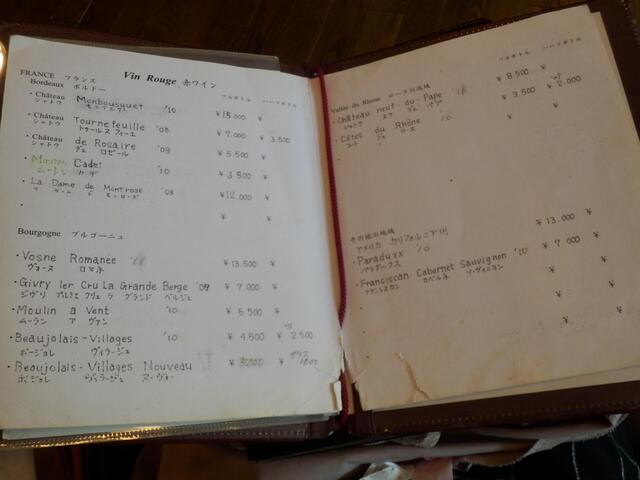 Vin Rouge 赤ワイン
FRANCE フランス
Bordeaux ボルドー
フルボトル ハーフボトル
・Château Monbousquet '10 ¥15.000 ¥
シャトウ モンブスケ
・Château Tournefeuille '08 ¥7.000 ¥3.500
シャトウ トゥールヌ フィーユ
・Château de Rosaire '09 ¥5.500 ¥
シャトウ デュ ロゼール
・Mouton Cadet '10 ¥3.500 ¥
ムートン カデ
・La Dame de Montrose '08 ¥12.000 ¥
ラ ダーム ド モンローズ
¥ ¥
Bourgogne ブルゴーニュ
・Vosne Romanee ¥13.500 ¥
ヴォーヌ ロマネ
・Givry 1er Cru La Grande Berge '09 ¥7.000 ¥
ジヴリ プルミエ クリュ ラ グランド ベルジュ
・Moulin a Vent '10 ¥5.500 ¥
ムーラン ア ヴァン
・Beaujolais-Villages '10 ¥4.500 ¥2.500
ボージョレ ヴィラージュ
・Beaujolais-Villages Nouveau ¥ ¥
ボジョレ ヴィラージュ ヌーヴォー
グラス
フルボトル ハーフボトル
Vallée du Rhône ローヌ川流域
・Château neuf-du-Pape ¥8.500 ¥
シャトウ ヌフ デュ パプ
・Côtes du Rhône '10 ¥3.500 ¥2.000
コート デュ ローヌ
その他の地域
アメリカ カリフォルニア州
・Paraduxx '10 ¥13.000 ¥
パラダックス
・Franciscan Cabernet Sauvignon '10 ¥7.000 ¥
フランシスカン カベルネ ソーヴィニヨン
¥ ¥
¥ ¥